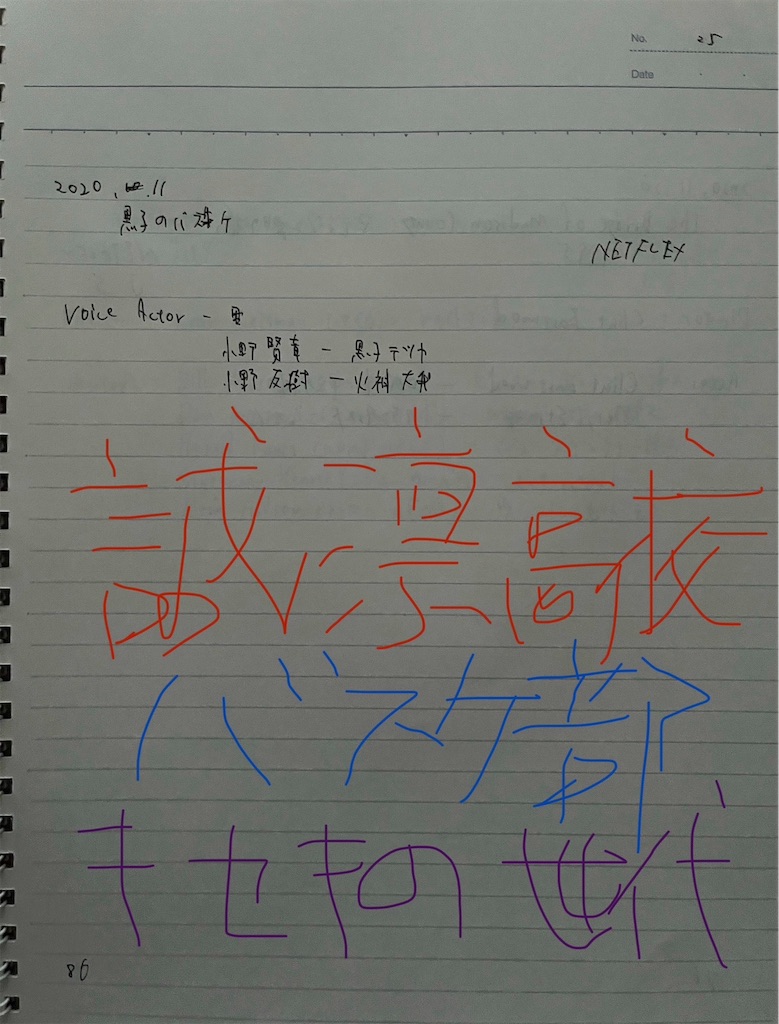 No. 25
Date
2020. .11
黒子のバスケ
NETFLEX
Voice Actor -
小野賢章 - 黒子テツヤ
小野友樹 - 火神大我
誠凛高校
バスケ部
キセキの世代
86